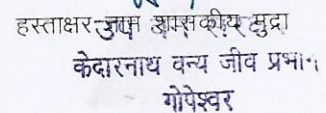 हस्ताक्षर-नाम शासकीय मुद्रा
केदारनाथ वन्य जीव प्रभाग
गोपेश्वर